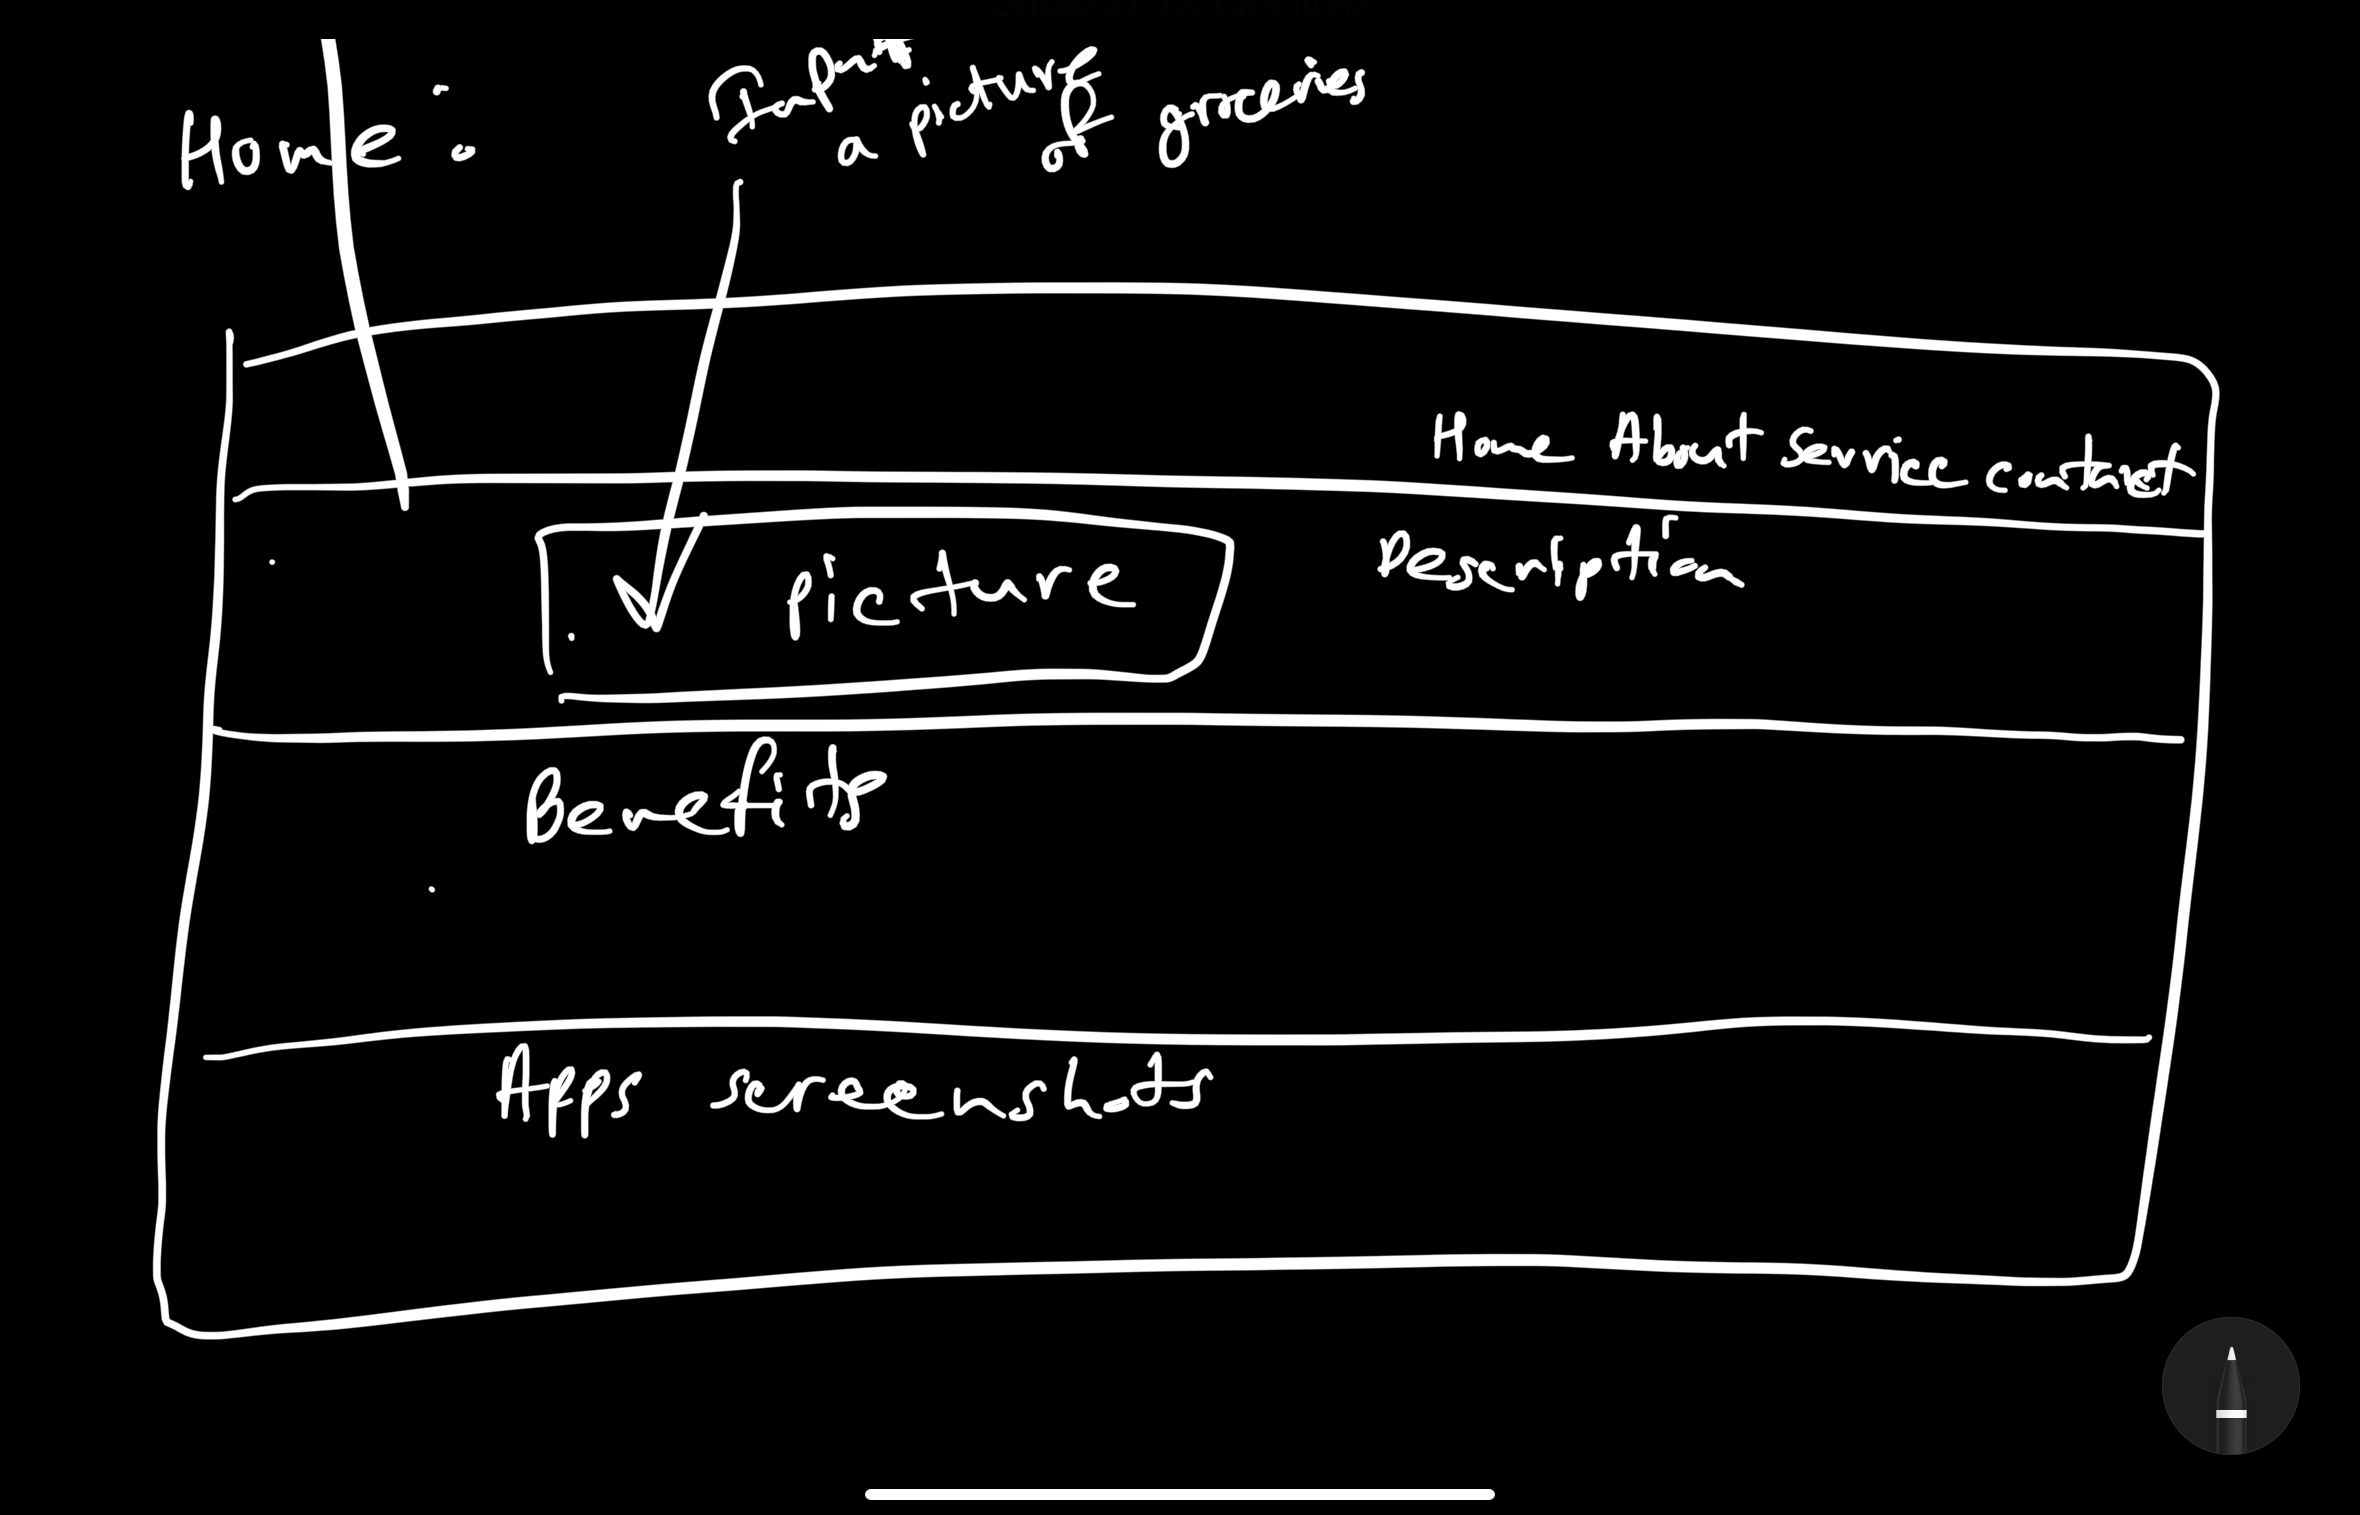 Home :
a picture of groceries
Home About Service contact
picture
Description
Benefits
Apps screenshots